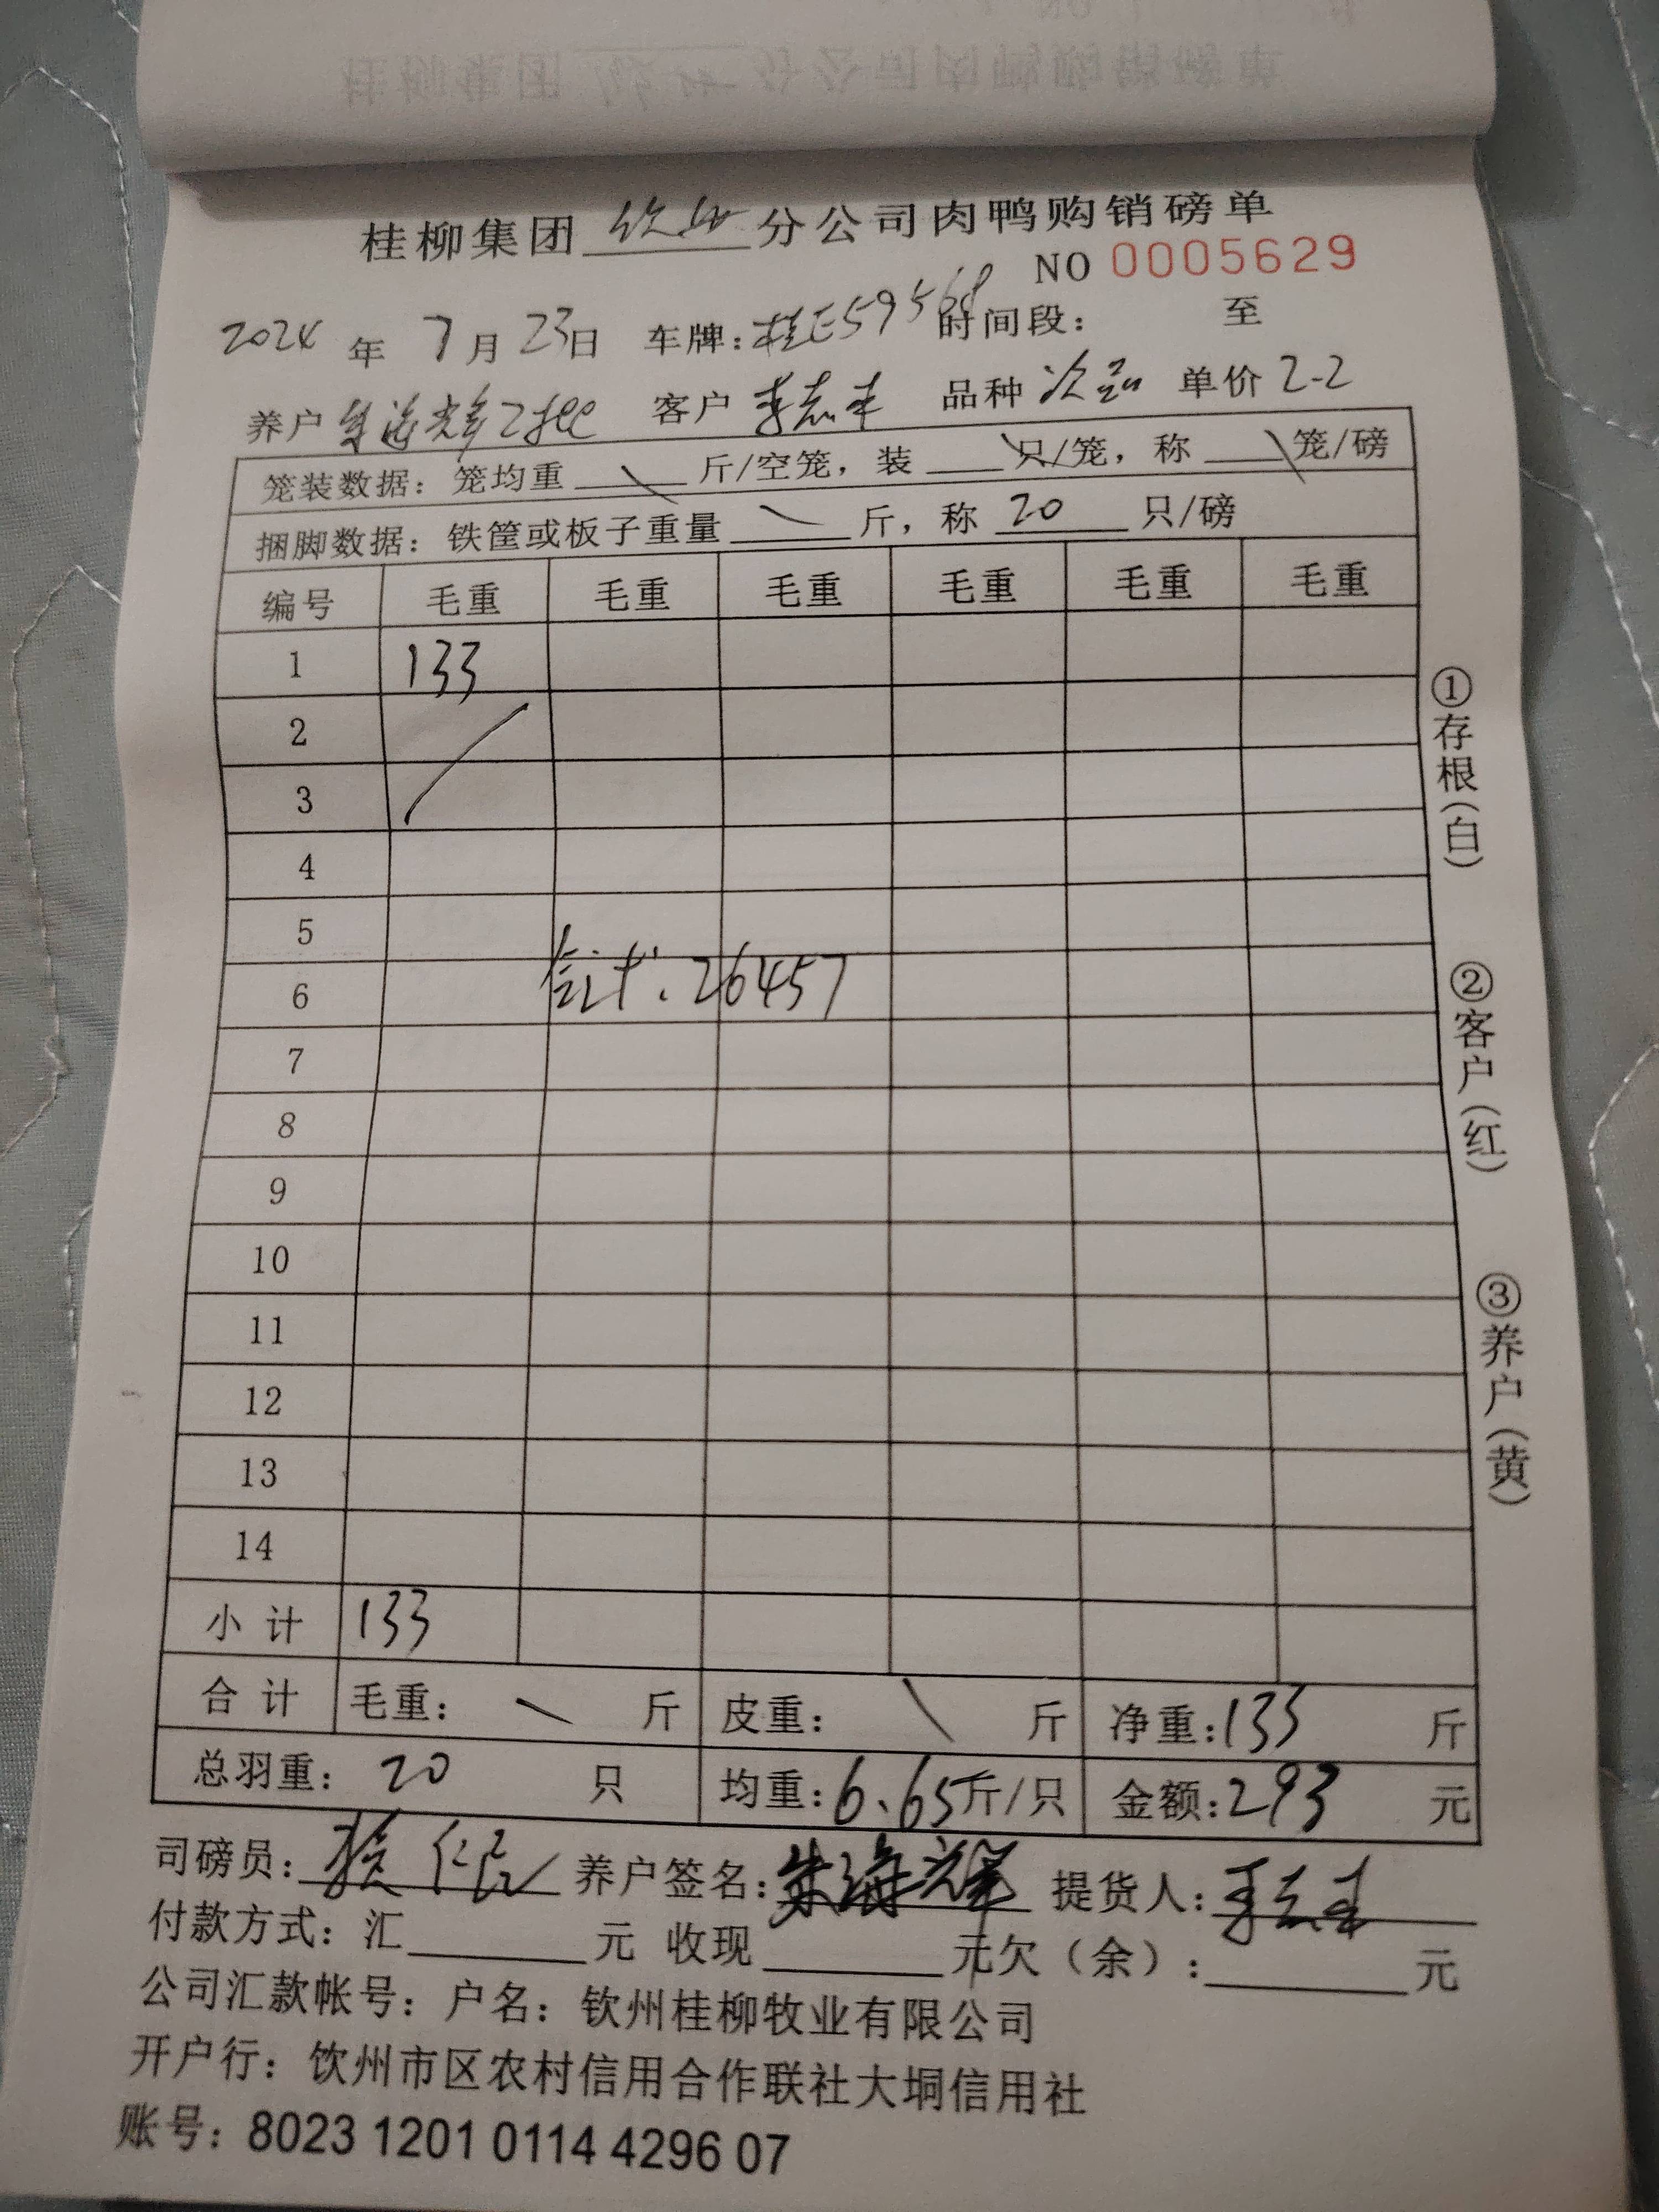 桂柳集团 钦州 分公司肉鸭购销磅单
NO 0005629
2024 年 7 月 23 日 车牌：桂E59568 时间段： 至
养户 朱海辉2批 客户 李志丰 品种 次品 单价 2.2
笼装数据：笼均重 斤/空笼，装 只/笼，称 笼/磅
捆脚数据：铁筐或板子重量 斤，称 20 只/磅
编号 毛重 毛重 毛重 毛重 毛重 毛重
1 133
2
3
4
5
6 合计：26457
7
8
9
10
11
12
13
14
小计 133
合计 毛重： 斤 皮重： 斤 净重：133 斤
总羽重：20 只 均重：6.65斤/只 金额：293 元
司磅员： 养户签名：朱海辉 提货人：李志丰
付款方式：汇 元 收现 元欠（余）： 元
公司汇款帐号：户名：钦州桂柳牧业有限公司
开户行：钦州市区农村信用合作联社大垌信用社
账号：8023 1201 0114 4296 07
①存根（白）
②客户（红）
③养户（黄）